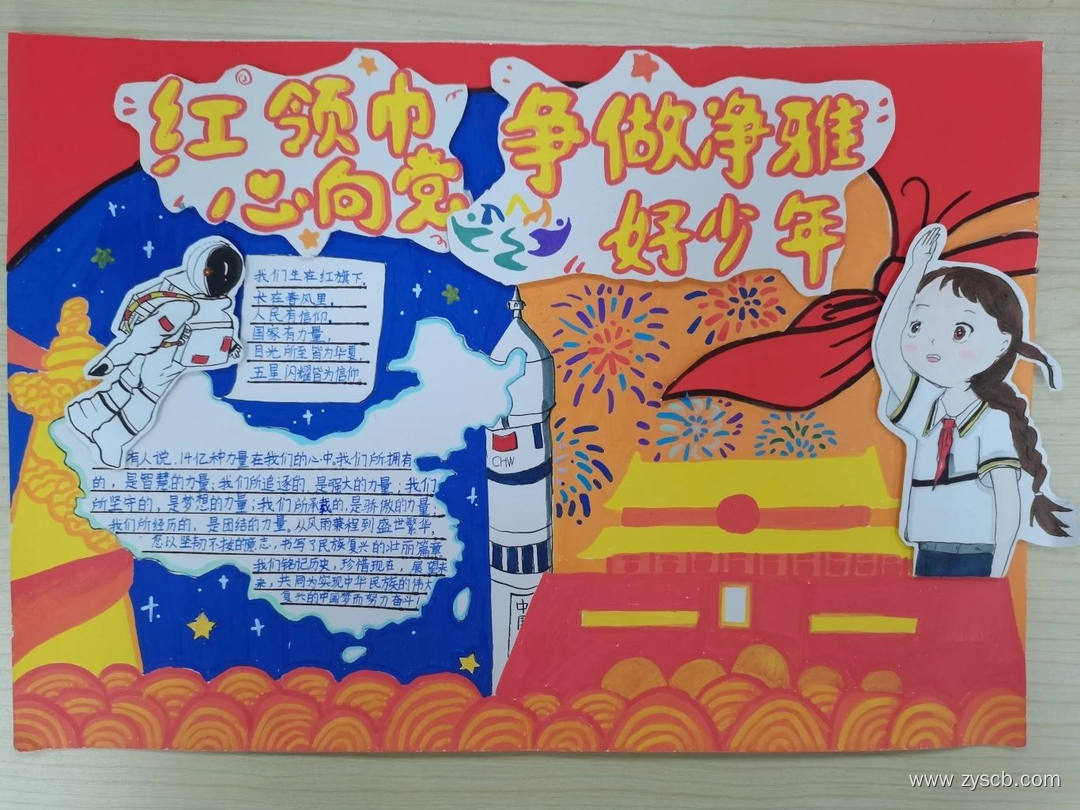 红领巾
心向党
争做净雅
好少年
我们生在红旗下,
长在春风里,
人民有信仰,
国家有力量,
目光所至皆为华夏,
五星闪耀皆为信仰.
有人说,14亿种力量在我们的心中.我们所拥有
的,是智慧的力量;我们所追逐的,是强大的力量;我们
所坚守的,是梦想的力量;我们所承载的,是骄傲的力量;
我们所经历的,是团结的力量.从风雨兼程到盛世繁华,
总以坚韧不拔的意志,书写了民族复兴的壮丽篇章
我们铭记历史,珍惜现在,展望未
来,共同为实现中华民族的伟大
复兴的中国梦而努力奋斗!
CHW
中
国
www.zyscb.com